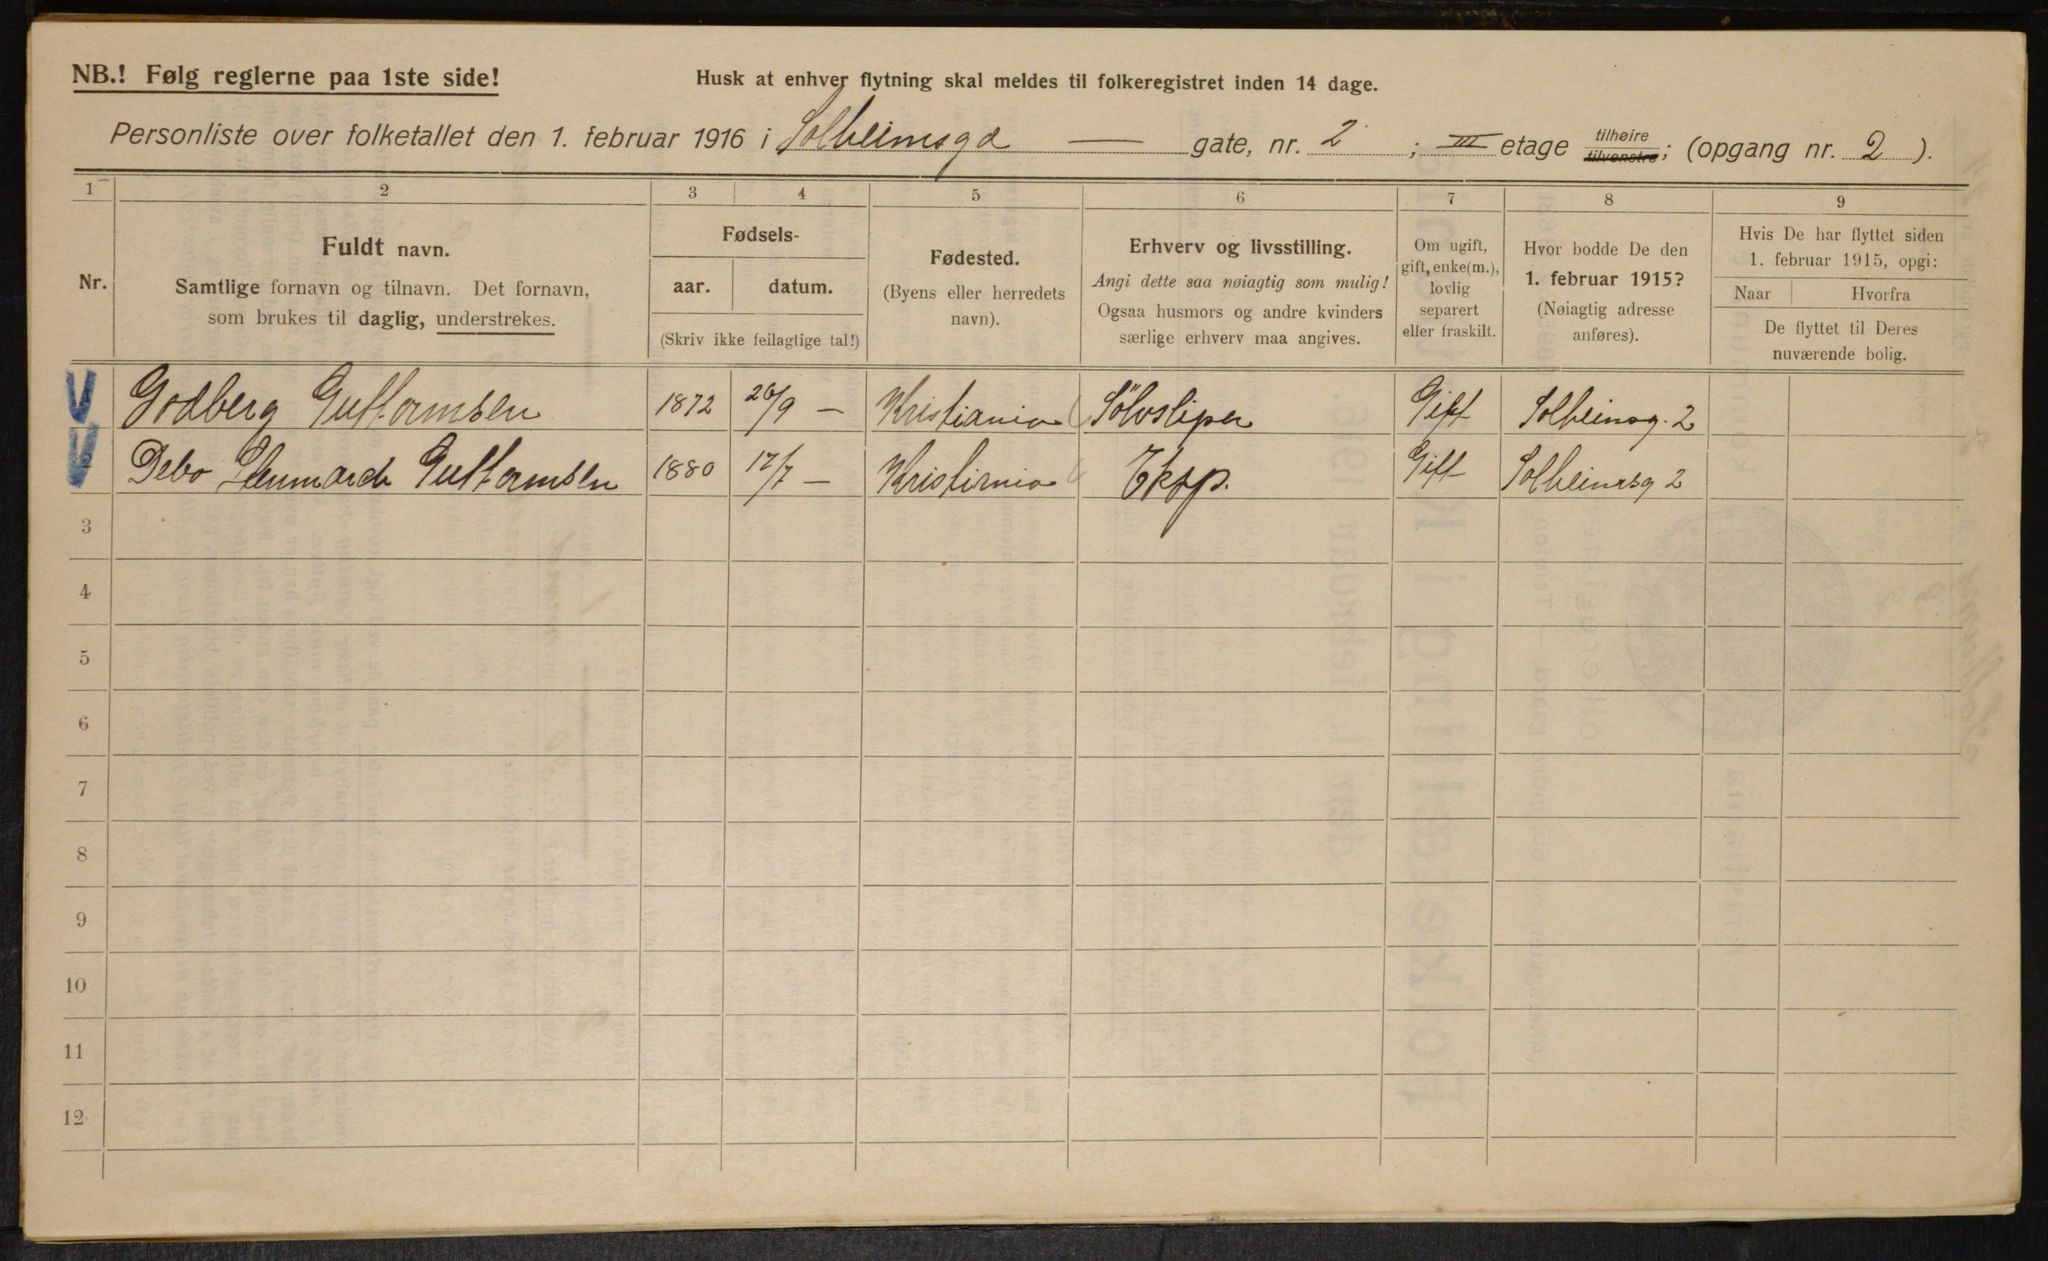 NB.! Følg reglerne paa 1ste side!
Husk at enhver flytning skal meldes til folkeregistret inden 14 dage.
Personliste over folketallet den 1. februar 1916 i Solheimsgd — gate, nr. 2 ; III etage tilhøire tilvenstre; (opgang nr. 2 ).
1 2 3 4 5 6 7 8 9
Nr.
Fuldt navn.
Samtlige fornavn og tilnavn. Det fornavn,
som brukes til daglig, understrekes.
Fødsels-
aar. datum.
(Skriv ikke feilagtige tal!)
Fødested.
(Byens eller herredets
navn).
Erhverv og livsstilling.
Angi dette saa nøiagtig som mulig!
Ogsaa husmors og andre kvinders
særlige erhverv maa angives.
Om ugift,
gift, enke(m.),
lovlig
separert
eller fraskilt.
Hvor bodde De den
1. februar 1915?
(Nøiagtig adresse
anføres).
Hvis De har flyttet siden
1. februar 1915, opgi:
Naar Hvorfra
De flyttet til Deres
nuværende bolig.
Godberg Guttormsen 1872 20/9 — Kristiania Sölvsliper Gift Solheimsg. 2
Guttormsen 1880 17/7 — Kristiania Eksp. Gift Solheimsg 2
3
4
5
6
7
8
9
10
11
12